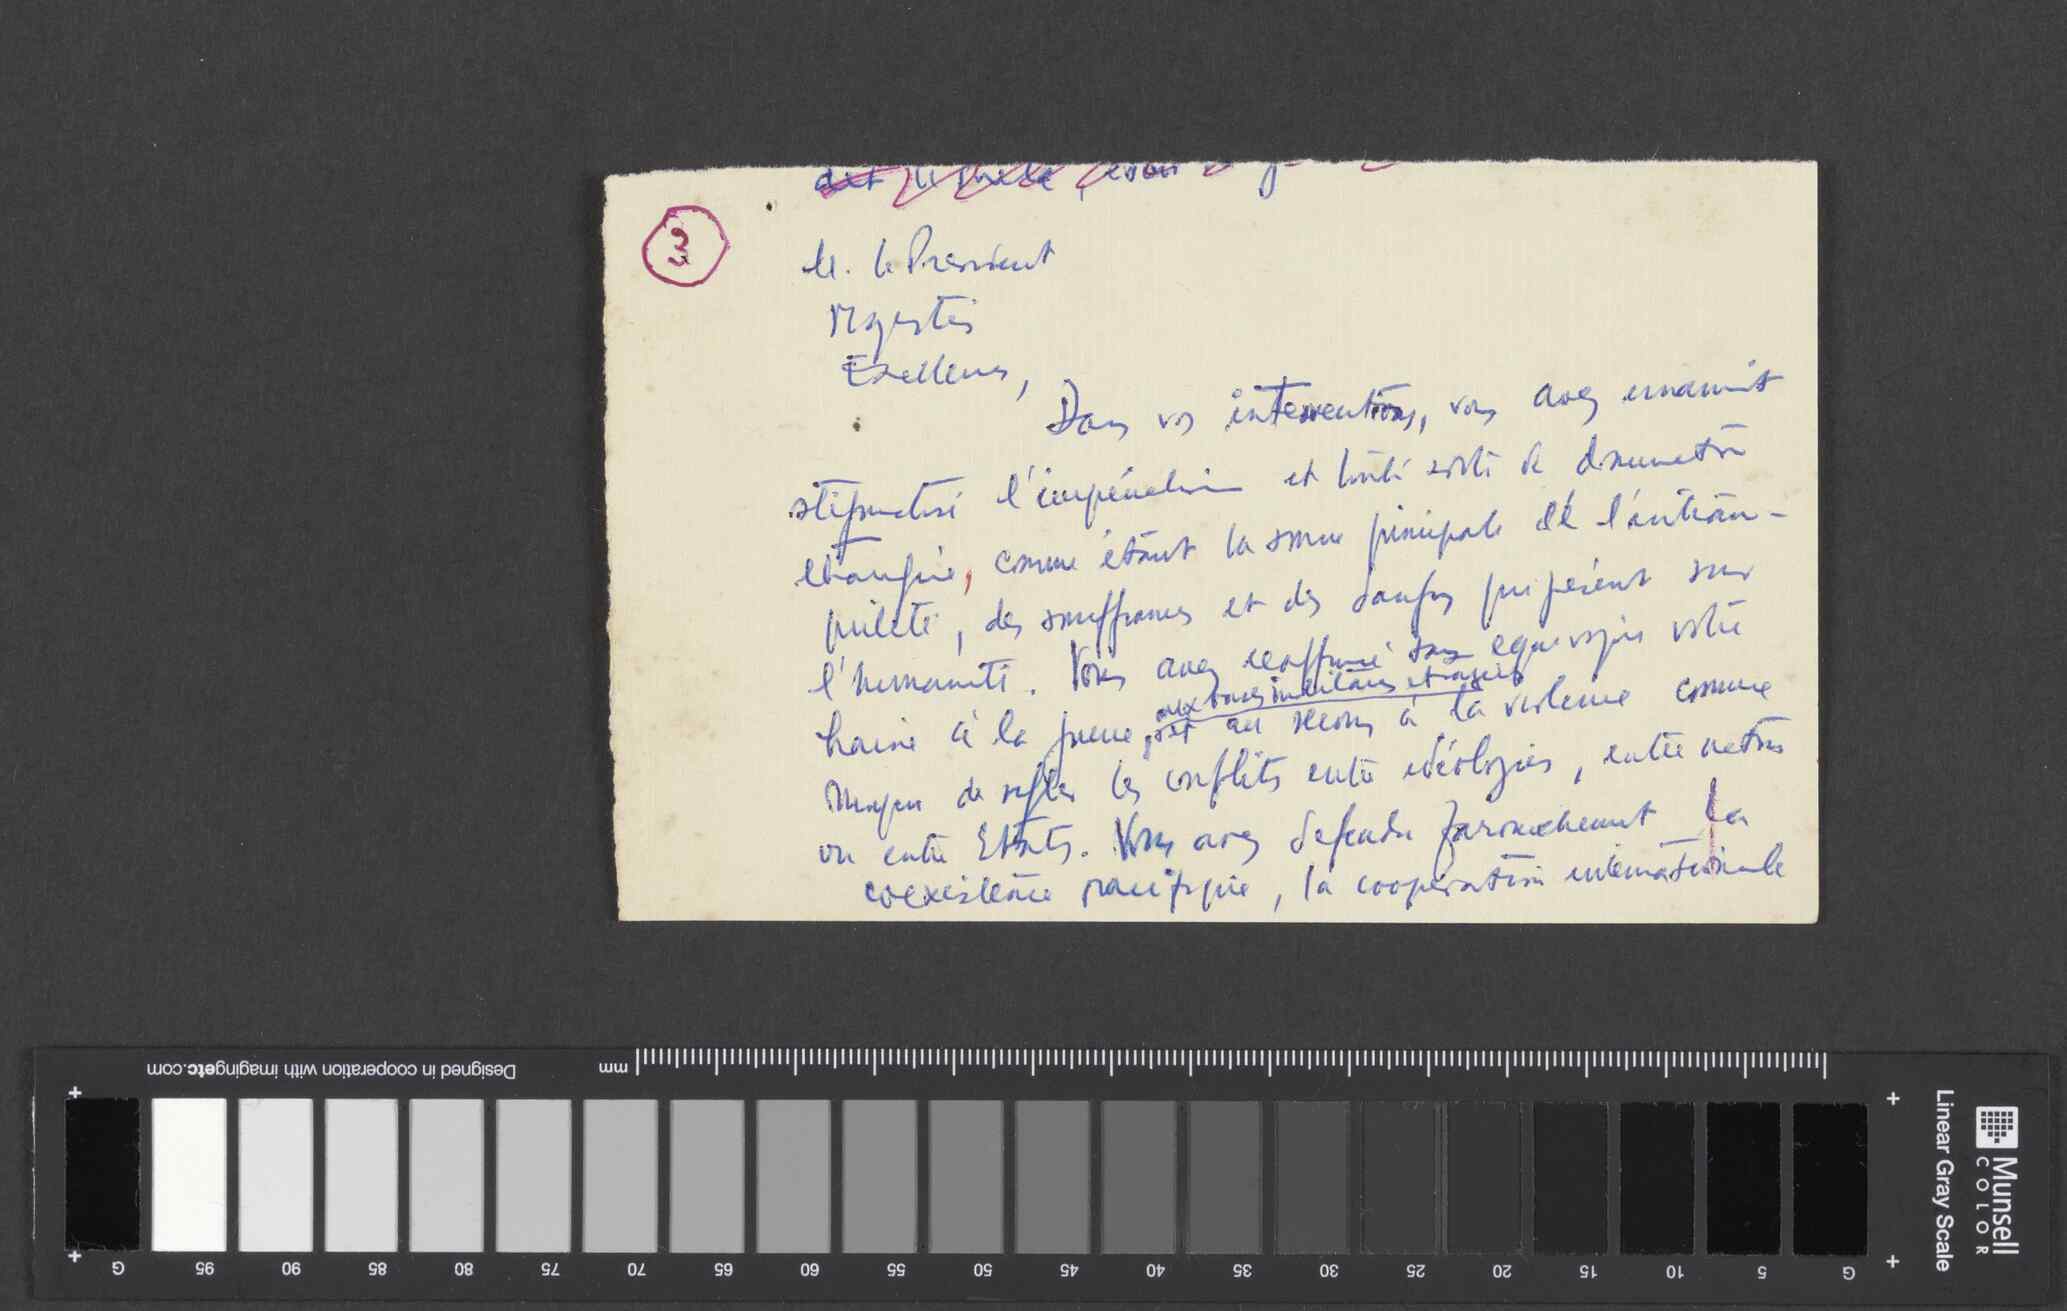 3
M. le Président
Majestés
Excellences,
Dans vos interventions, vous avez unanimit
stigmatisé l'impérialisme et toute sorte de domination
étrangère, comme étant la source principale de l'intran-
quilité, des souffrances et des dangers qui pèsent sur
l'humanité. Vous avez réaffirmé sans equivoque votre
aux bases militaires étrangères
haine à la guerre, et au recours à la violence comme
moyen de régler les conflits entre idéologies, entre nations
ou entre Etats. Vous avez défendu farouchement la
coexistence pacifique, la coopération internationale
Designed in cooperation with imagingetc.com
mm
G 95 90 85 80 75 70 65 60 55 50 45 40 35 30 25 20 15 10 5 G
Linear Gray Scale
Munsell
COLOR